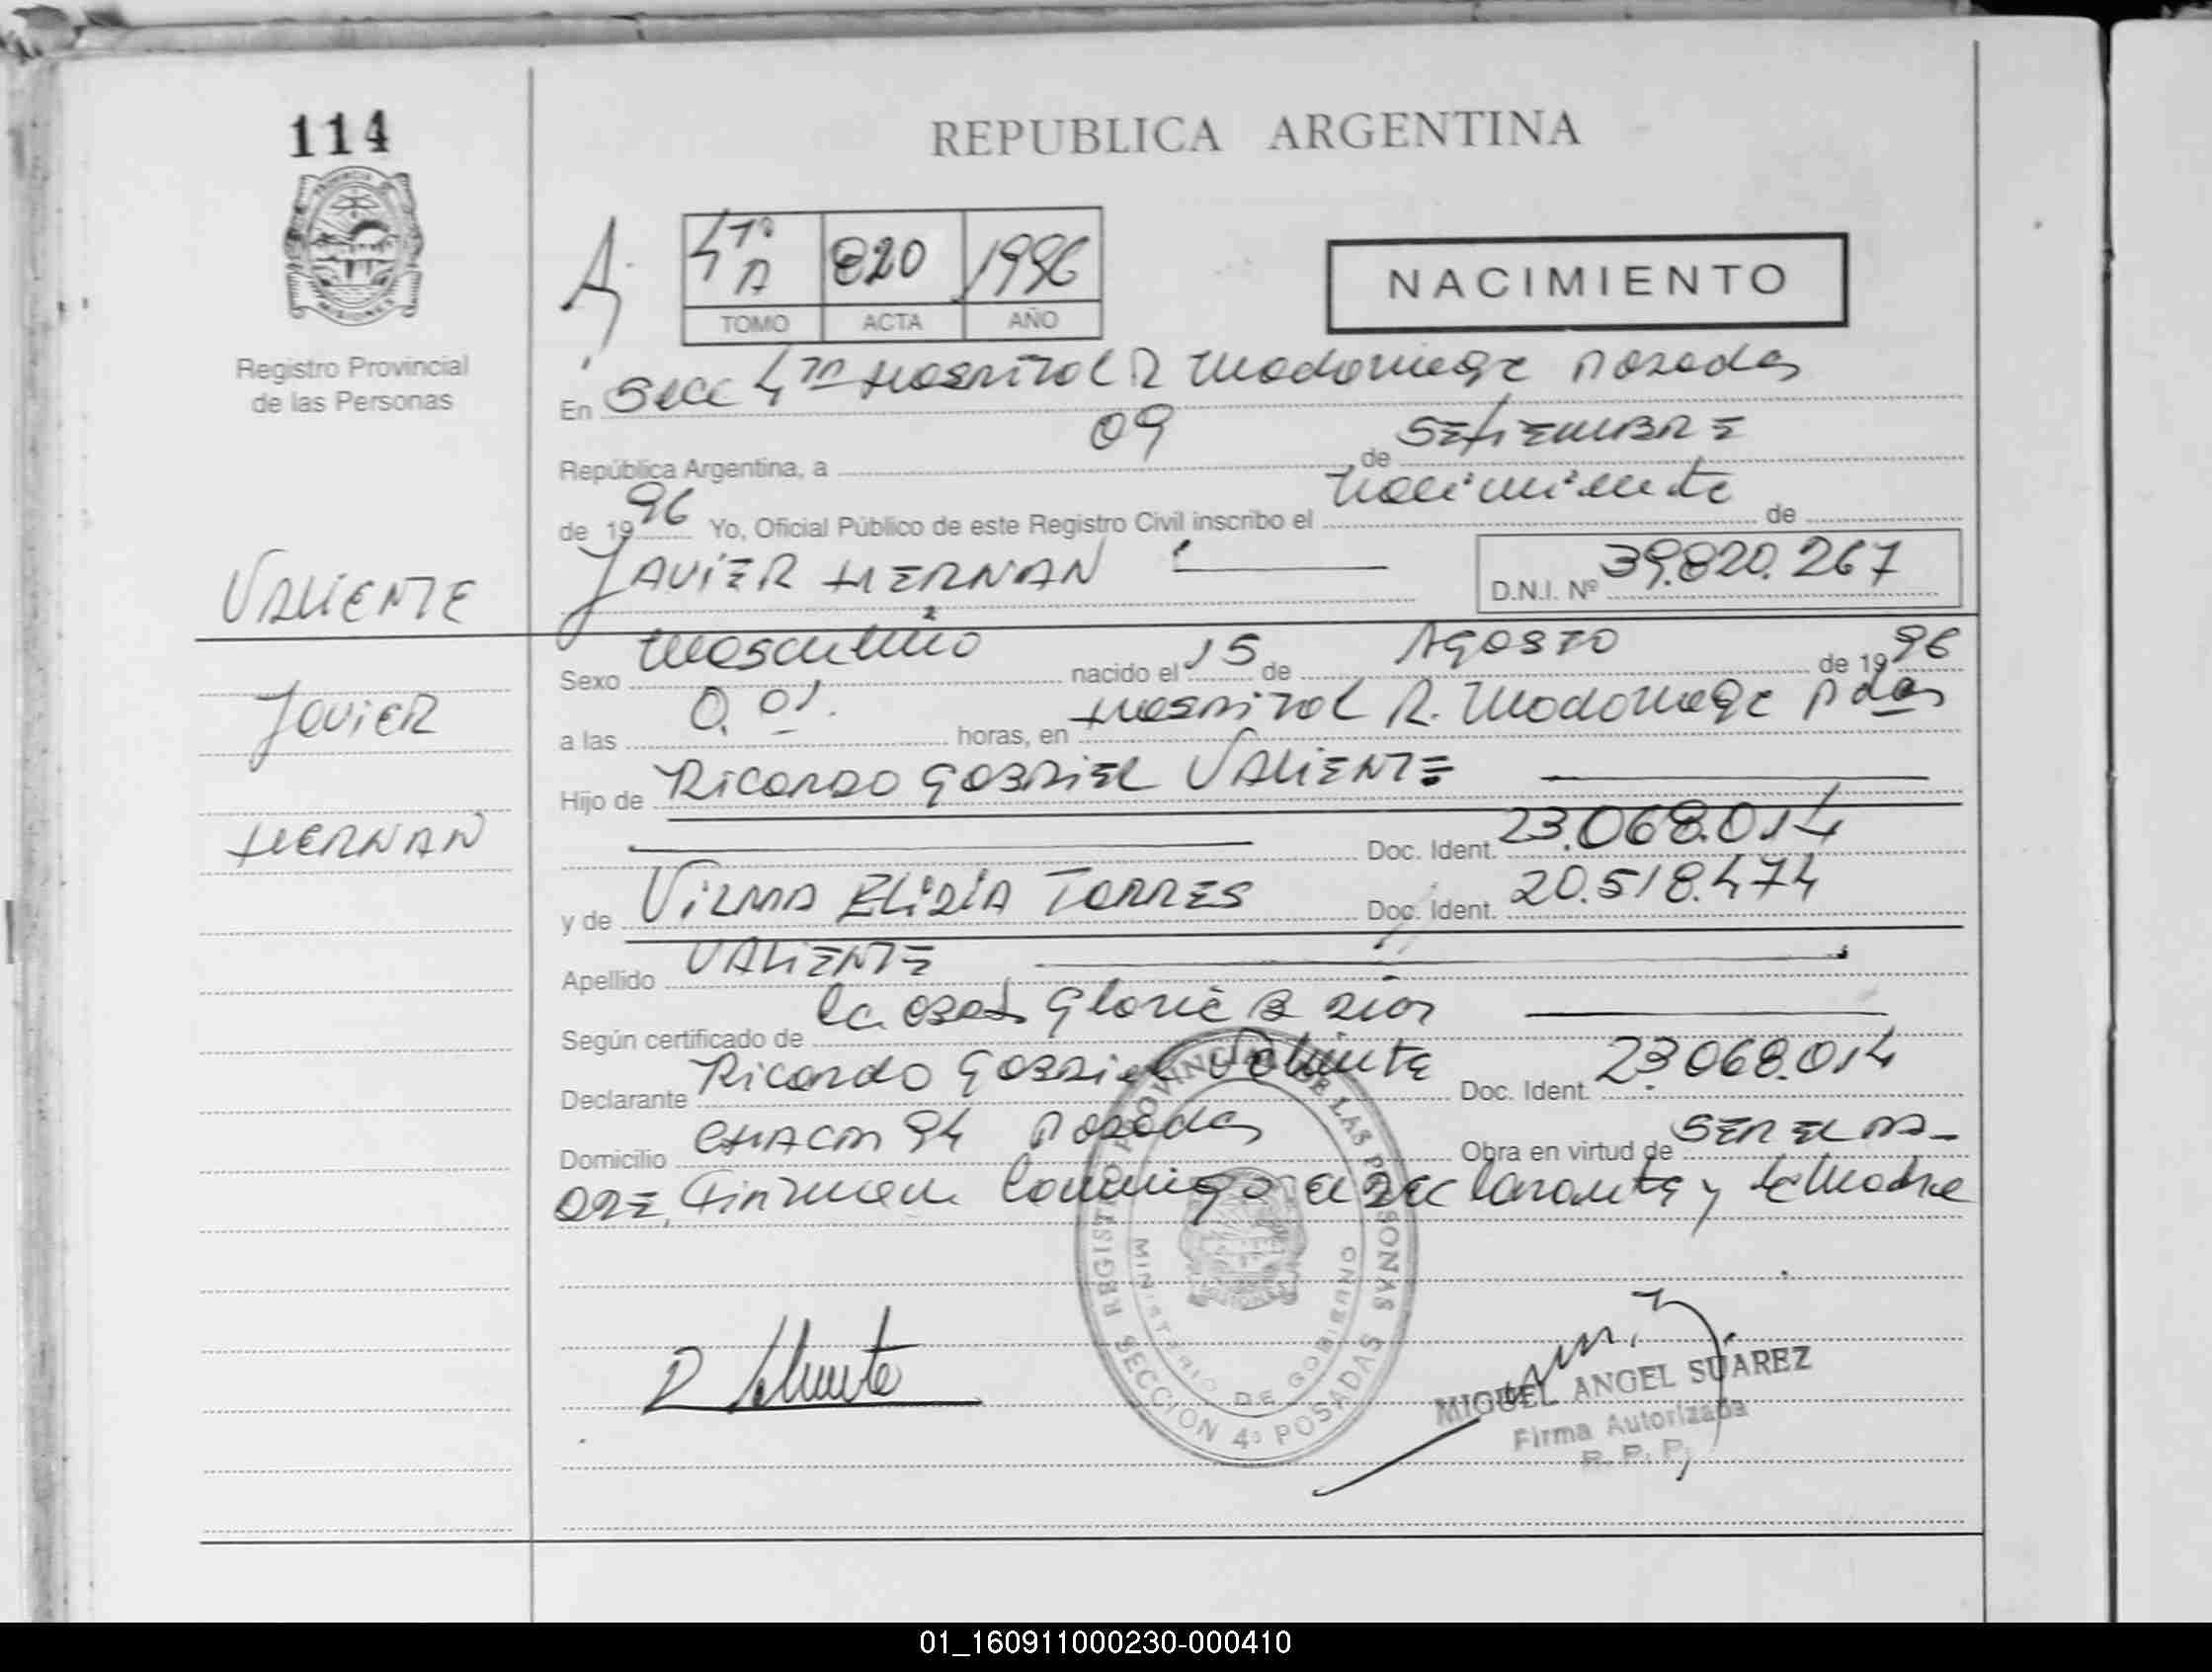 114
REPUBLICA ARGENTINA
4ta A 820 1996
TOMO ACTA AÑO
NACIMIENTO
Registro Provincial
de las Personas
En Secc 4ta Hospital R Madariaga Posadas
República Argentina, a 09 de SETIEMBRE
de 1996 Yo, Oficial Público de este Registro Civil inscribo el nacimiento de
JAVIER HERNAN D.N.I. Nº 39.820.267
VALIENTE
Javier
HERNAN
Sexo masculino nacido el 15 de AGOSTO de 1996
a las 0.01. horas, en Hospital R. Madariaga Pdas
Hijo de RICARDO GABRIEL VALIENTE
Doc. Ident. 23.068.014
y de VILMA TORRES Doc. Ident. 20.518.474
Apellido VALIENTE
Según certificado de la Obst Gloria B
Declarante Ricardo Gabriel Valiente Doc. Ident. 23.068.014
Domicilio 94 Posadas Obra en virtud de SER EL PA-
DRE, Firman conmigo el declarante y la Madre
REGISTRO PROVINCIAL DE LAS PERSONAS
MINISTERIO DE GOBIERNO
SECCION 4ª POSADAS
R Valiente
MIGUEL ANGEL SUAREZ
Firma Autorizada
R. P. P.
01_160911000230-000410